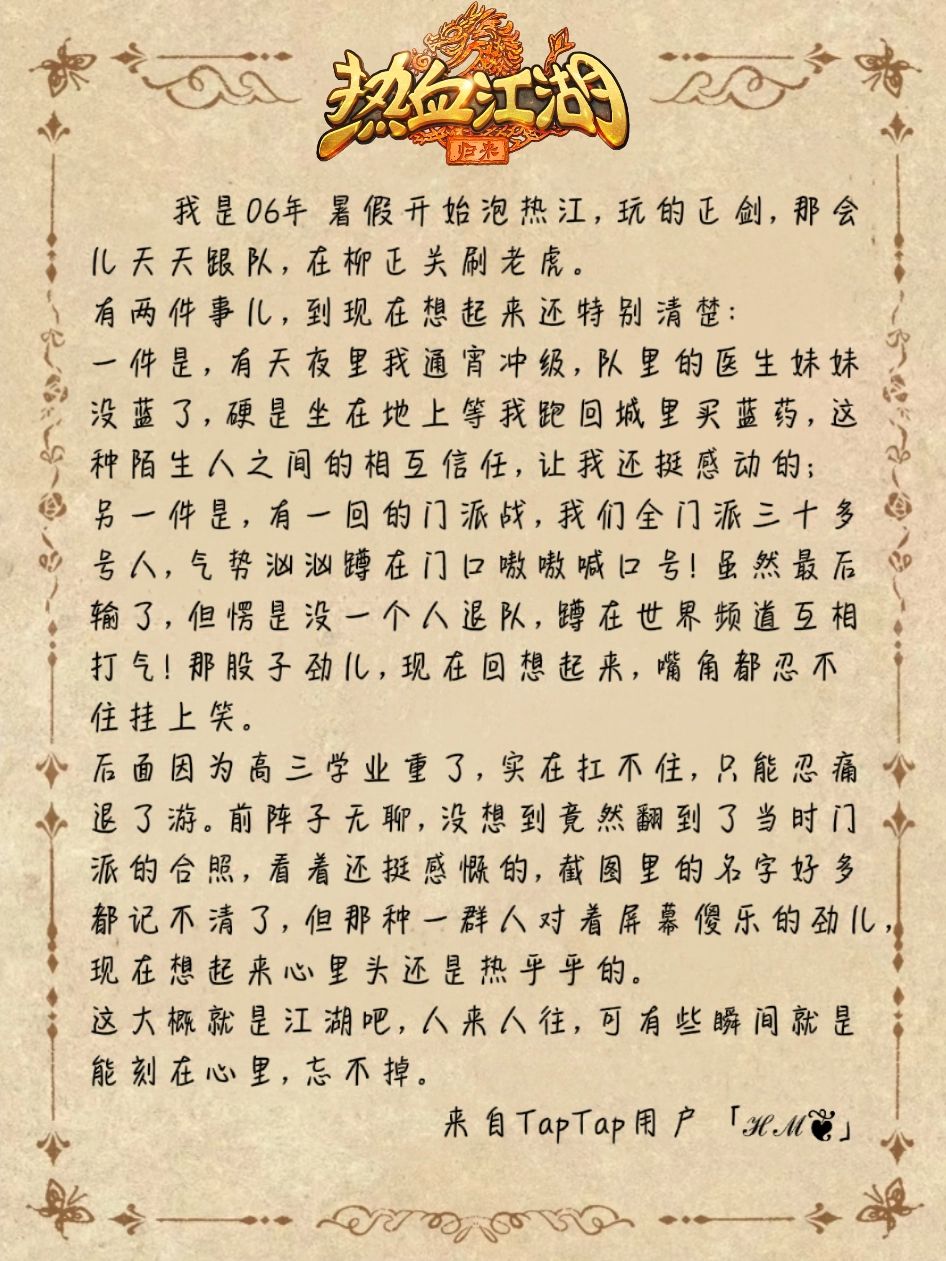 热血江湖
归来
我是06年暑假开始泡热江，玩的正剑，那会
儿天天跟队，在柳正关刷老虎。
有两件事儿，到现在想起来还特别清楚：
一件是，有天夜里我通宵冲级，队里的医生妹妹
没蓝了，硬是坐在地上等我跑回城里买蓝药，这
种陌生人之间的相互信任，让我还挺感动的；
另一件是，有一回的门派战，我们全门派三十多
号人，气势汹汹蹲在门口嗷嗷喊口号！虽然最后
输了，但愣是没一个人退队，蹲在世界频道互相
打气！那股子劲儿，现在回想起来，嘴角都忍不
住挂上笑。
后面因为高三学业重了，实在扛不住，只能忍痛
退了游。前阵子无聊，没想到竟然翻到了当时门
派的合照，看着还挺感慨的，截图里的名字好多
都记不清了，但那种一群人对着屏幕傻乐的劲儿，
现在想起来心里头还是热乎乎的。
这大概就是江湖吧，人来人往，可有些瞬间就是
能刻在心里，忘不掉。
来自TapTap用户「ℋℳ❦」